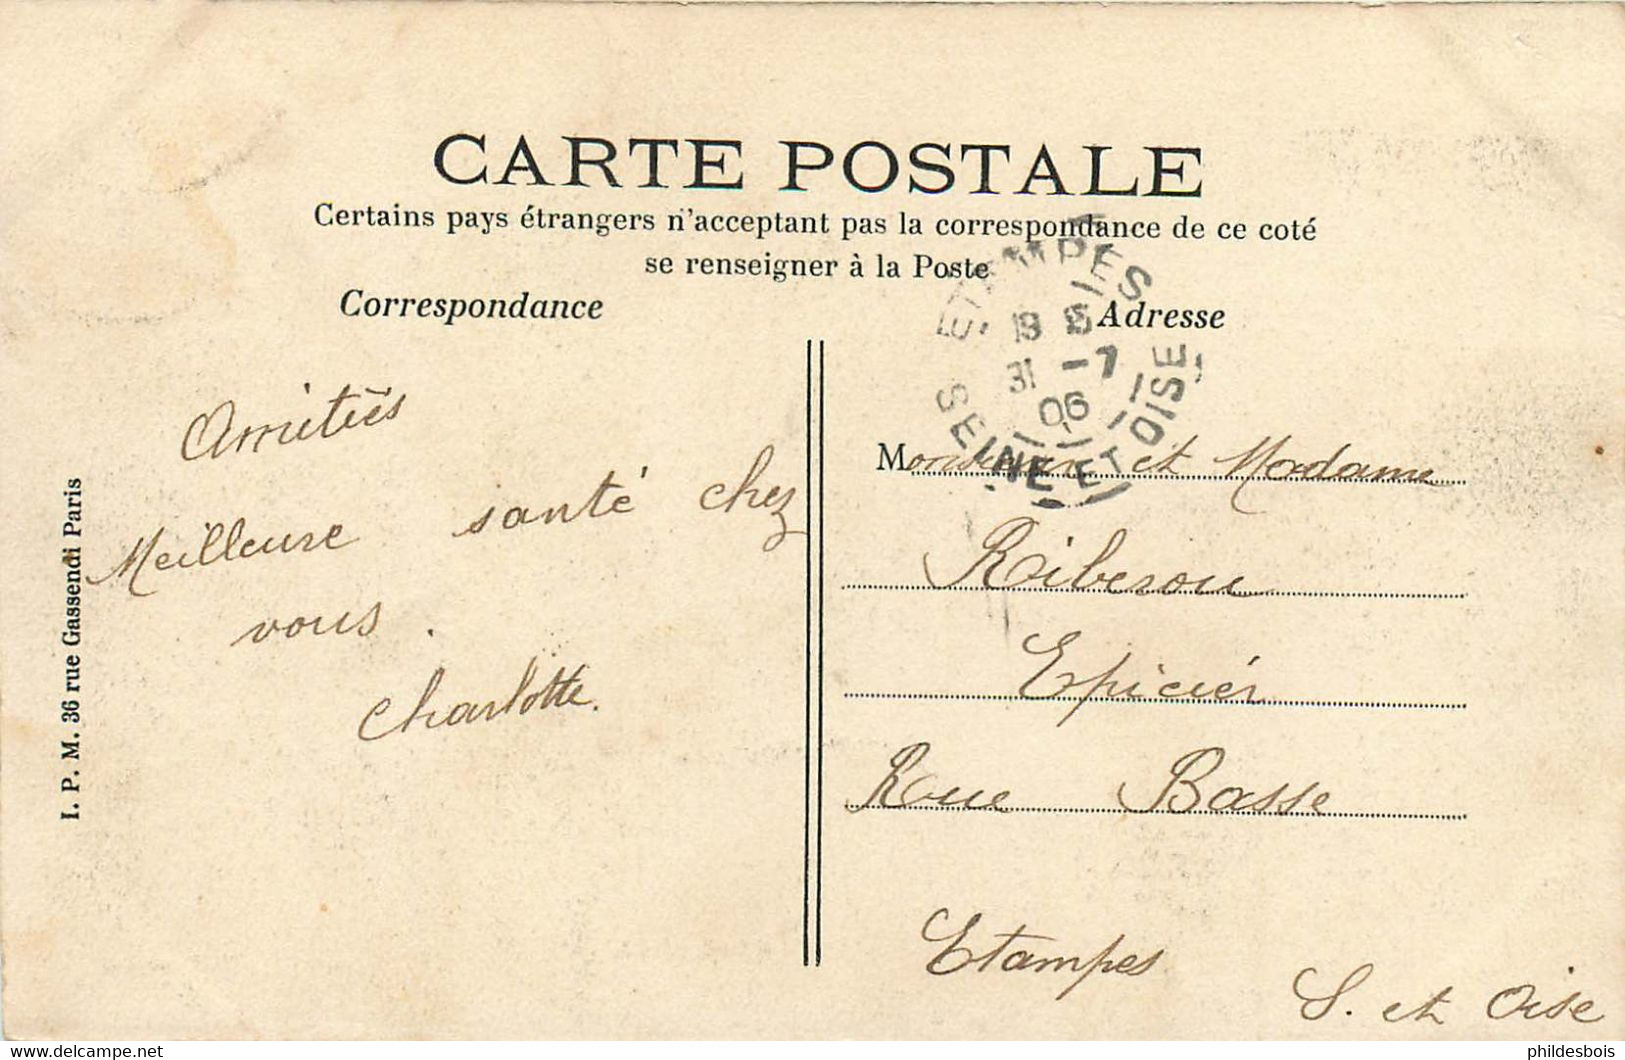 CARTE POSTALE
Certains pays étrangers n'acceptant pas la correspondance de ce coté
se renseigner à la Poste
Correspondance
Adresse
ETAMPES
18
31 -7
06
SEINE ET OISE
Amitiés
Meilleure santé chez
vous.
Charlotte.
I. P. M. 36 rue Gassendi Paris
Monsieur et Madame
Riberou
Epiciér
Rue Basse
Etampes
S. et Oise
delcampe.net
phildesbois